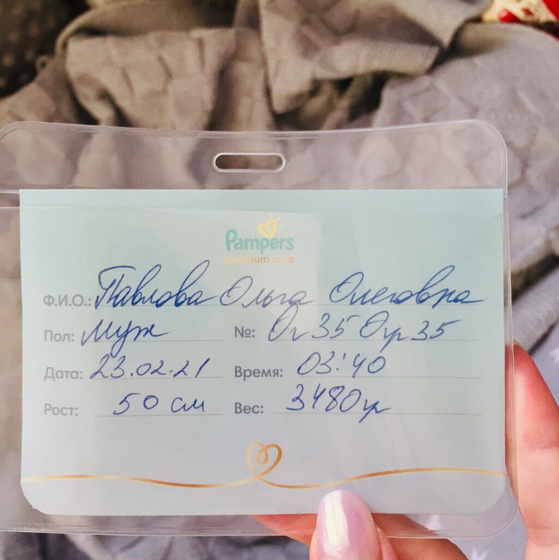 Pampers
premium care
Ф.И.О.: Павлова Ольга Олеговна
Пол: муж №: 0v 35 0ур 35
Дата: 23.02.21 Время: 03:40
Рост: 50 см Вес: 3480гр